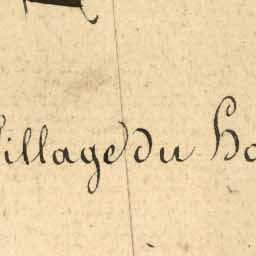 Village du Ho